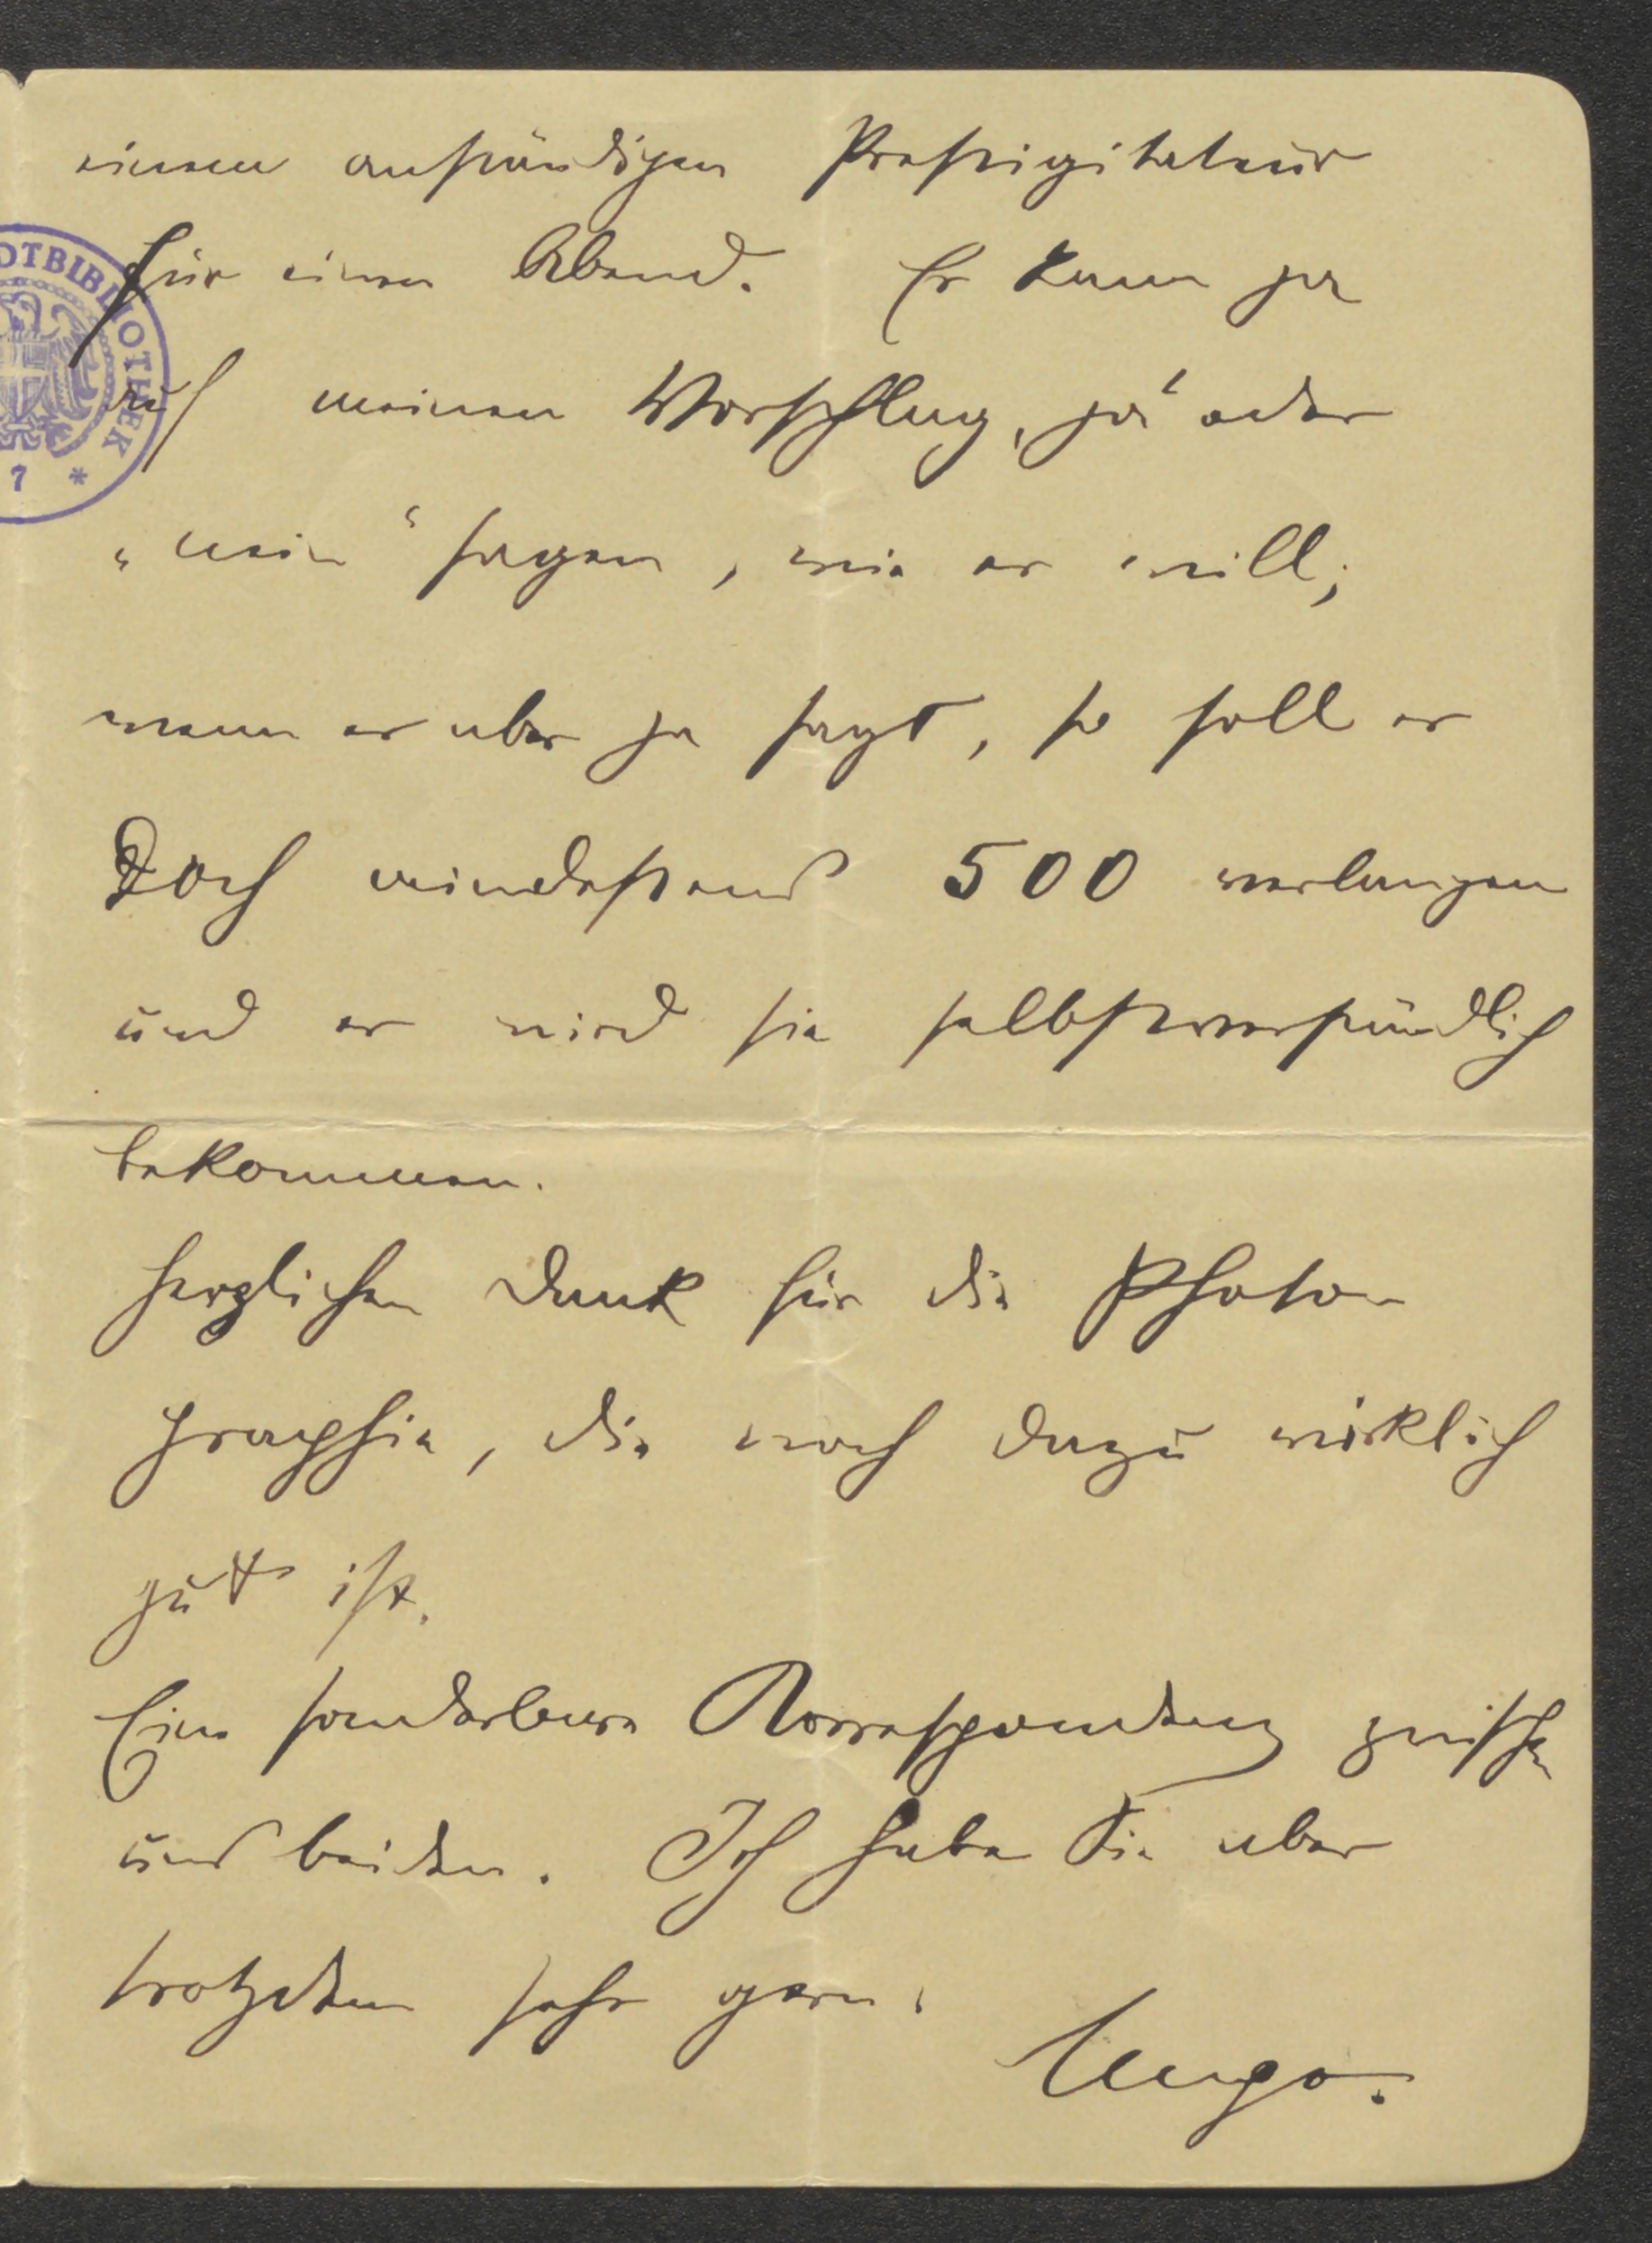 einen anständigen Prestigitateur
für einen Abend. Er kann ja
auf meinen Vorschlag „ja“ oder
„nein“ sagen, wie er will;
wenn er aber ja sagt, so soll er
doch mindestens 500 verlangen
und er wird sie selbstverständlich
bekommen.
Herzlichen Dank für die Photo-
graphie, die noch dazu wirklich
gut ist.
Eine sonderbare Correspondenz zwischen
uns beiden. Ich habe Sie aber
trotzdem sehr gern.
Hugo.
DTBIBLIOTHEK
7 *